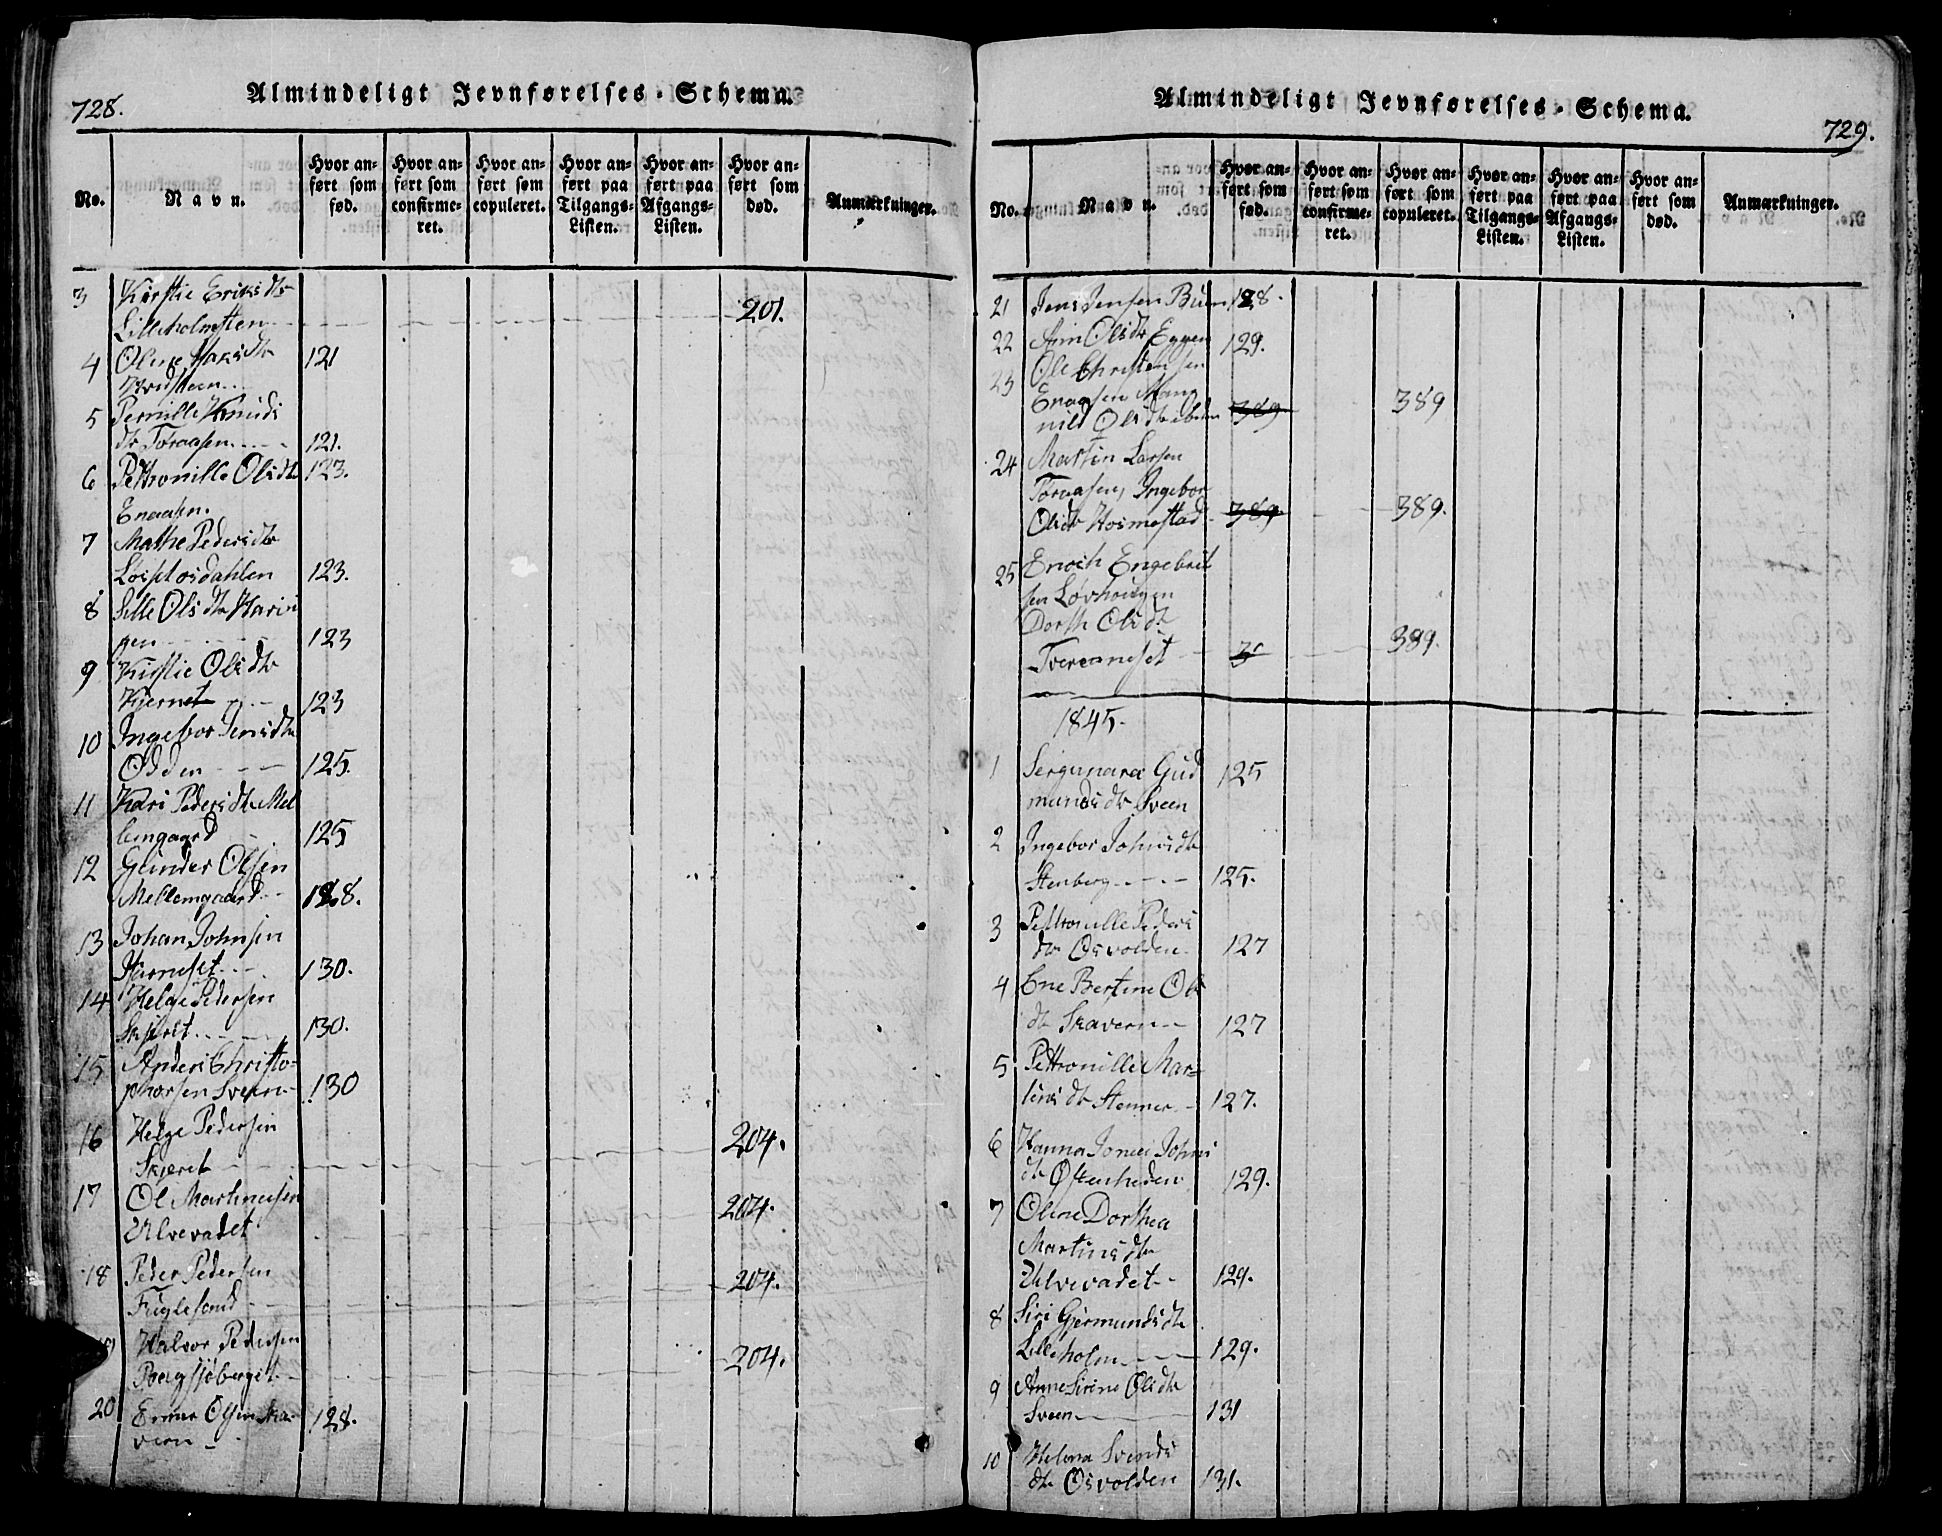 728.
Almindeligt Jevnførelses-Schema.
No.
Navn.
Hvor anført som fød.
Hvor anført som confirmeret.
Hvor anført som copuleret.
Hvor anført paa Tilgangs-Listen.
Hvor anført paa Afgangs-Listen.
Hvor anført som død.
Anmærkninger.
3 Kirstie Eriksdtr
Lilleholmsten 201.
4 Oline
121
5 Pernille Knuds
dtr Toraasen 121.
6 Pettronille Olsdtr 123.
Enaasen.
7 Mathe Pedersdtr
123.
8 Sille Olsdtr
gen 123
9 Kirstie Olsdtr
Kjernet 123
10 Ingebor Jensdtr
Odden 125.
11 Kari Pedersdtr Mel
lemgaard 125
12 Gunder Olsen
Mellemgaard 128.
13 Johan Johnsen
130.
14 Helge Pedersen
Skjeret 130.
15 Anders Christo-
phersen Sveen 130
16 Helge Pedersen 204.
Skjeret
17 Ol Martinusen 204.
Ulvevadet
18 Peder Pedersen 204.
Fuglesand
Halvor Pedersen 204.
Bergsjöberget
20 Olsen Ska- 128.
vern
Almindeligt Jevnførelses-Schema.
729.
No.
Navn.
Hvor anført som fød.
Hvor anført som confirmeret.
Hvor anført som copuleret.
Hvor anført paa Tilgangs-Listen.
Hvor anført paa Afgangs-Listen.
Hvor anført som død.
Anmærkninger.
21 Jens Jensen Buen 128.
22 Olsdtr Eggen 129.
23 Ole Christensen
Enaasen Mang
nild Olsdtr ibdm 389 389
24 Martin Larsen
Toraasen, Ingebor
Olsdtr 389 389.
25 Enoch Engebret
sen Løvhougen
Dorth Olsdtr
Tvereneset 3 389.
1845.
1 Gud 125
mundsdtr Sveen
2 Ingebor Johnsdtr
Stenberg 125.
3 Pettronille Peders
dtr Osvolden 127
4 Ene Bertine Ols
dtr Skavern 127
5 Pettronille Mar-
tinsdtr Stenner 127.
6 Hanna Johns
dtr Østenheden 129.
7 Oline Dorthea
Martinsdtr
Ulvevadet 129.
8 Siri Gjermundsdtr
Lilleholm 129.
9 Anne Sirine Olsdtr
Sveen 131
10 Helena Svends
dtr Osvolden 131.